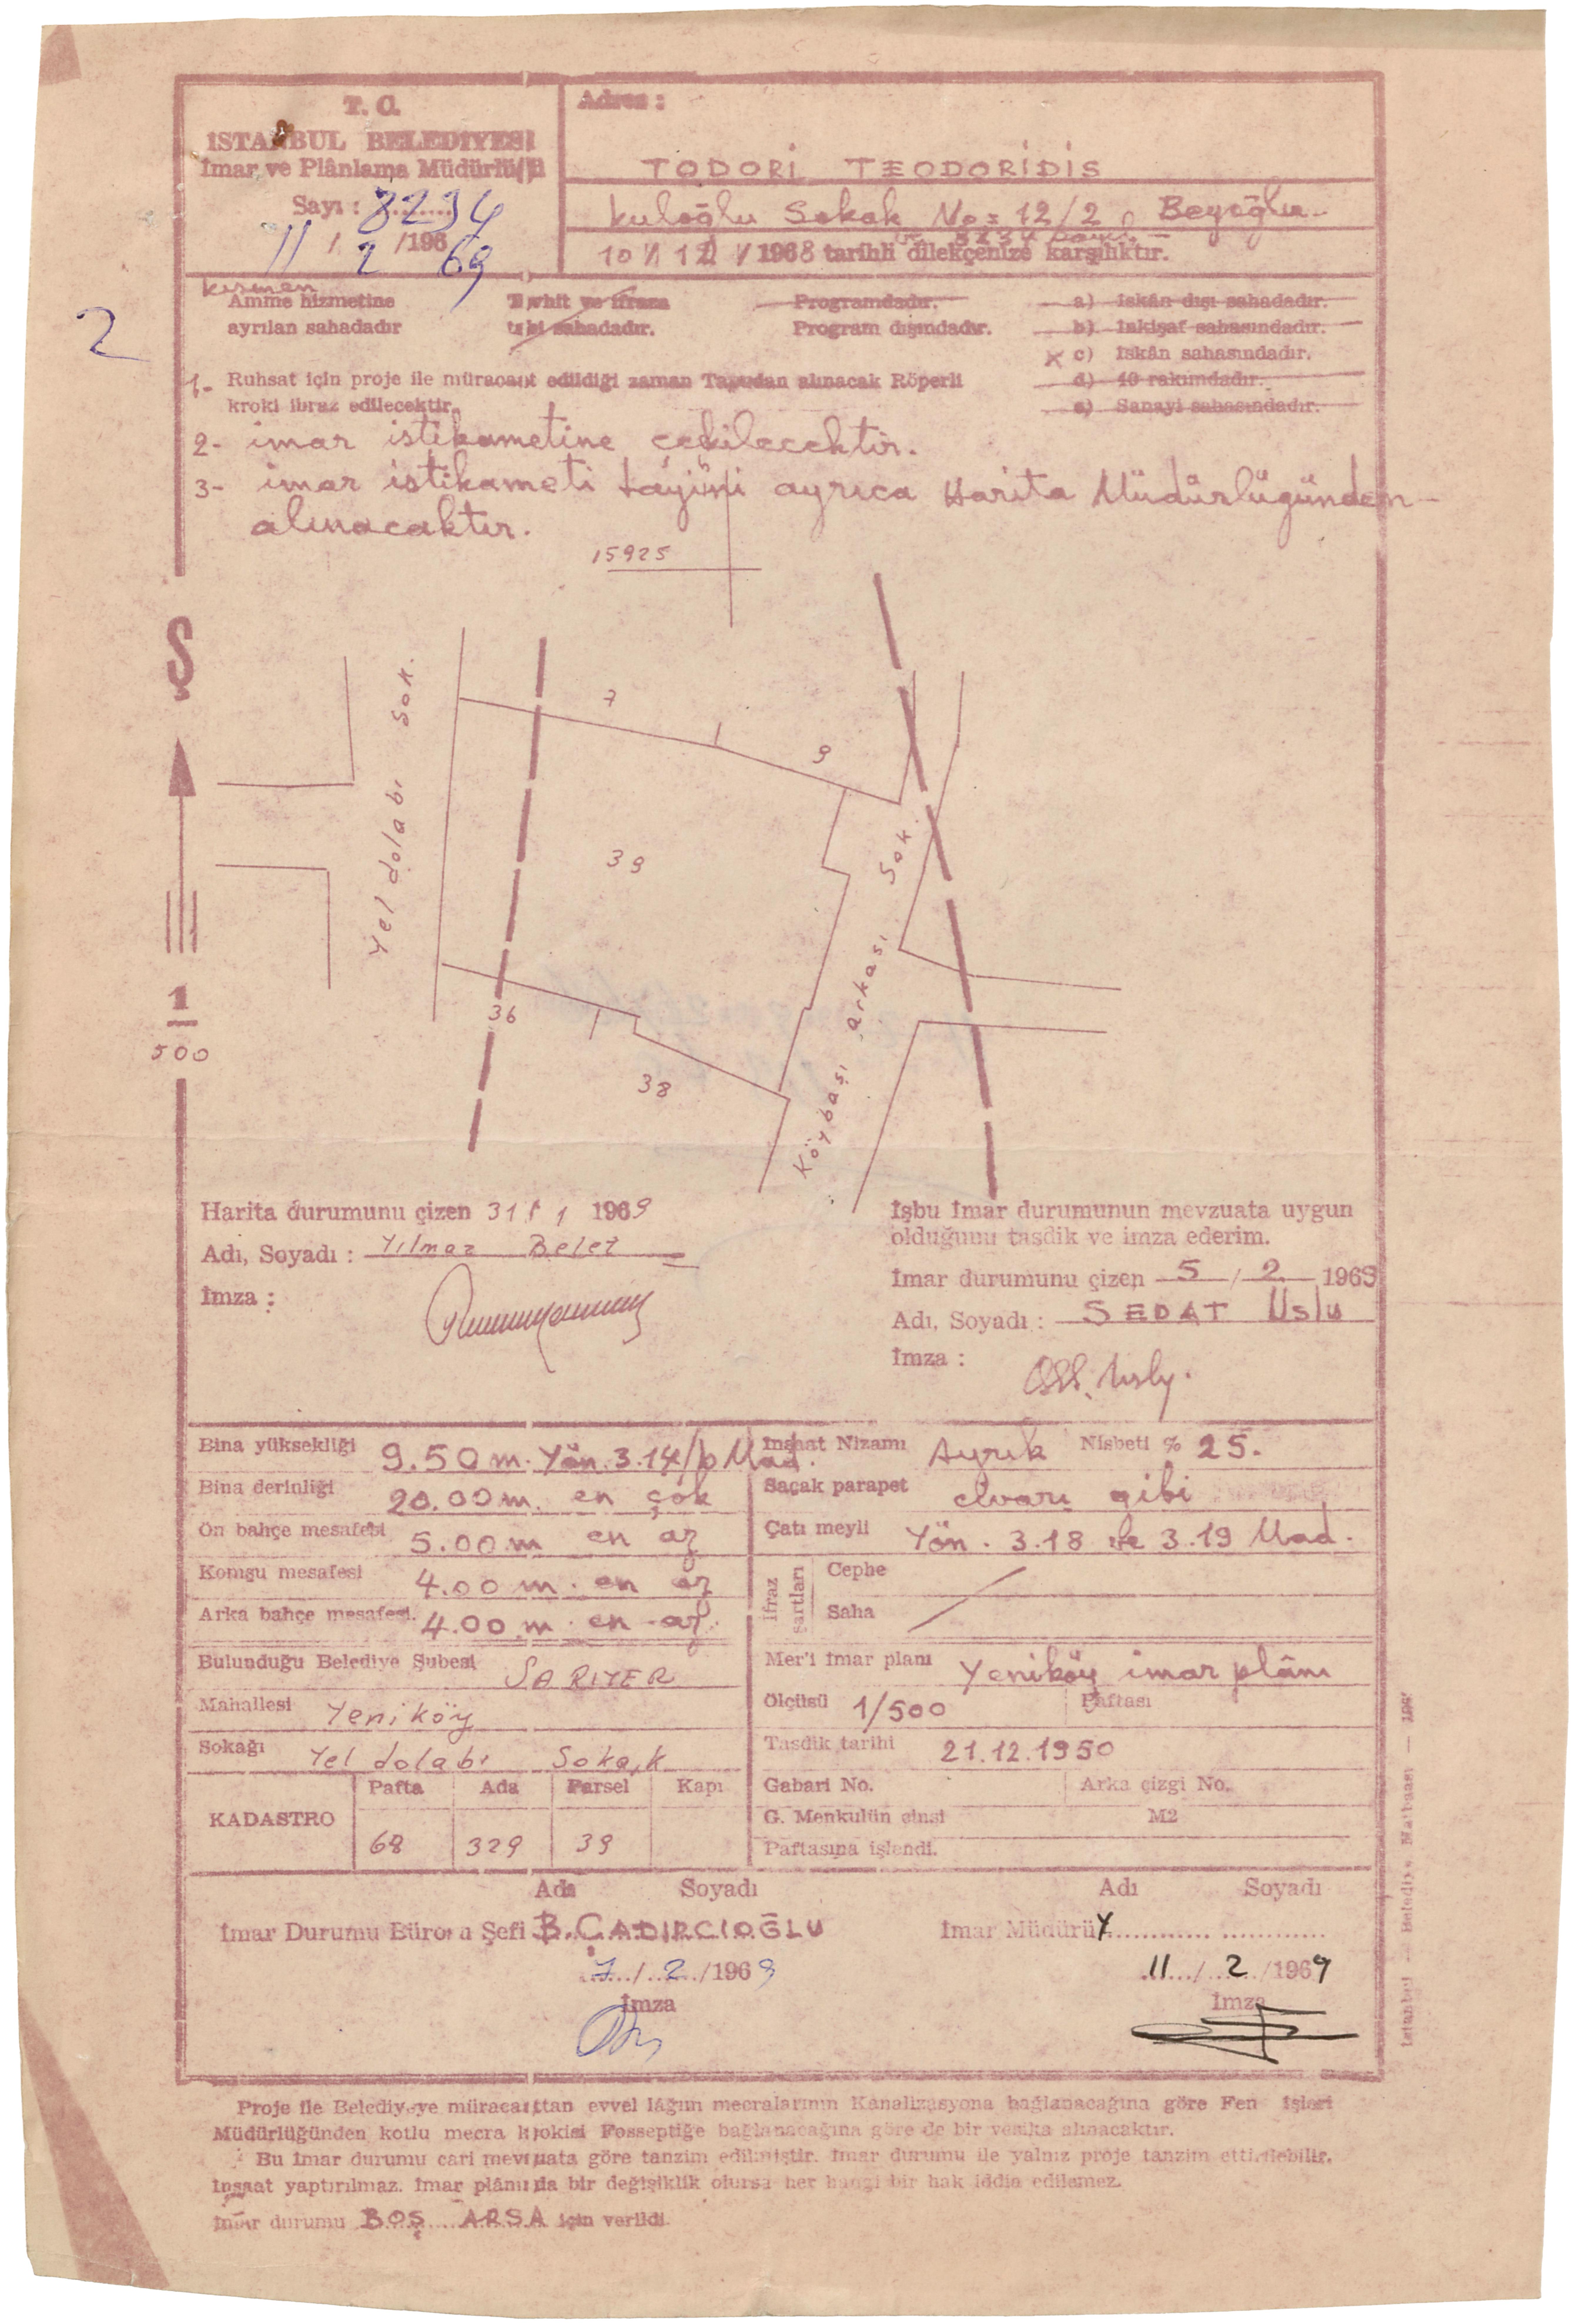 T. C.
İSTANBUL BELEDİYESİ
İmar ve Plânlama Müdürlüğü
Sayı : 8234
11 / 2 /196 69
Adres :
TODORİ TEODORİDİS
Kuloğlu Sokak No= 12/2 Beyoğlu-
ve 8234 sayılı
10 / 12 / 1968 tarihli dilekçenize karşılıktır.
kısmen
Amme hizmetine
ayrılan sahadadır
Tevhit ve ifraza
tabi sahadadır.
Programdadır.
Program dışındadır.
a) İskân dışı sahadadır.
b) İnkişaf sahasındadır.
x c) İskân sahasındadır.
d) 40 rakımdadır.
e) Sanayi sahasındadır.
2
1- Ruhsat için proje ile müracaat edildiği zaman Tapudan alınacak Röperli
kroki ibraz edilecektir.
2- imar istikametine çekilecektir.
3- imar istikameti tâyini ayrıca Harita Müdürlüğünden-
alınacaktır.
15925
Ş
1
500
Yel dolabı Sok.
7
9
39
36
38
Köybaşı arkası Sok.
Harita durumunu çizen 31 / 1 1969
Adı, Soyadı : Yılmaz Belet
İmza :
İşbu İmar durumunun mevzuata uygun
olduğunu tasdik ve imza ederim.
İmar durumunu çizen 5 / 2 1969
Adı, Soyadı : SEDAT Uslu
İmza :
Bina yüksekliği 9.50 m. Yön. 3.14/b Mad.
Bina derinliği 20.00 m. en çok
Ön bahçe mesafesi 5.00 m en az
Komşu mesafesi 4.00 m. en az
Arka bahçe mesafesi. 4.00 m. en az.
Bulunduğu Belediye Şubesi SARIYER
Mahallesi Yeniköy
Sokağı Yel dolabı Sokak
KADASTRO
Pafta Ada Parsel Kapı
68 329 39
İnşaat Nizamı Ayrık Nisbeti % 25.
Saçak parapet civarı gibi
Çatı meyli Yön. 3.18 ile 3.19 Mad.
İfraz şartları
Cephe
Saha
Mer'i imar planı Yeniköy imar plânı
Ölçüsü 1/500 Paftası
Tasdik tarihi 21.12.1950
Gabari No. Arka çizgi No.
G. Menkulün cinsi M2
Paftasına işlendi.
Adı Soyadı
İmar Durumu Bürosu Şefi B. ÇADIRCIOĞLU
7 / 2 /1969
İmza
Adı Soyadı
İmar Müdürü Y
11 / 2 /1969
İmza
İstanbul — Belediye Matbaası — 196
Proje ile Belediyeye müracaattan evvel lâğım mecralarının Kanalizasyona bağlanacağına göre Fen İşleri
Müdürlüğünden kotlu mecra krokisi Fosseptiğe bağlanacağına göre de bir vesika alınacaktır.
Bu İmar durumu cari mevzuata göre tanzim edilmiştir. İmar durumu ile yalnız proje tanzim ettirilebilir.
İnşaat yaptırılmaz. İmar plânında bir değişiklik olursa her hangi bir hak iddia edilemez.
İmar durumu BOŞ ARSA için verildi.